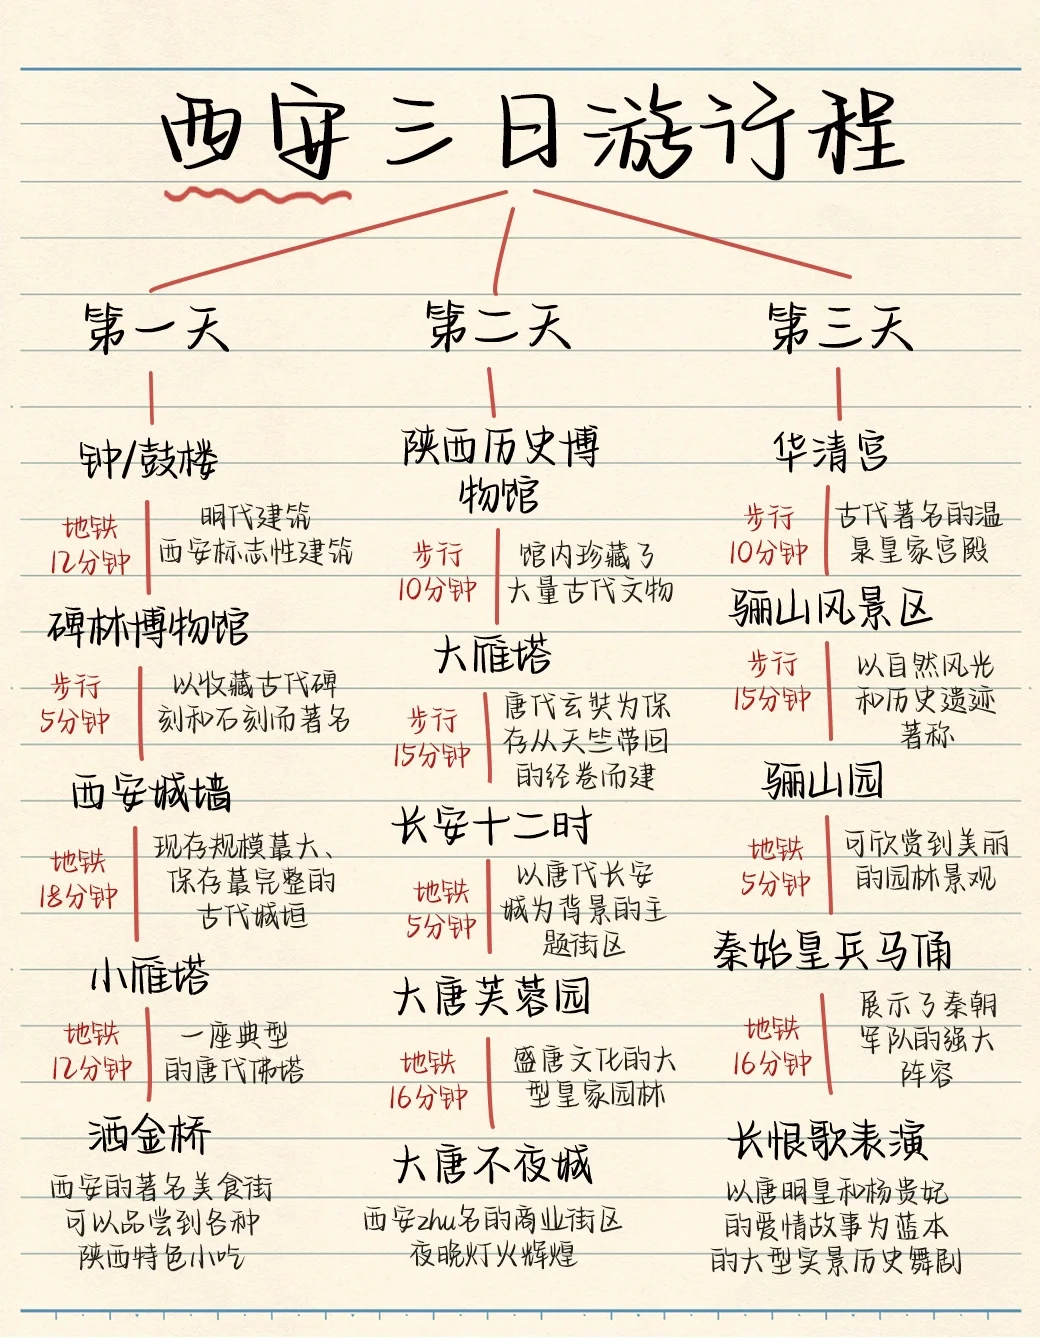 西安三日游行程
第一天
钟/鼓楼
地铁
12分钟
明代建筑
西安标志性建筑
碑林博物馆
步行
5分钟
以收藏古代碑
刻和石刻而著名
西安城墙
地铁
18分钟
现存规模最大、
保存最完整的
古代城垣
小雁塔
地铁
12分钟
一座典型
的唐代佛塔
洒金桥
西安的著名美食街
可以品尝到各种
陕西特色小吃
第二天
陕西历史博
物馆
步行
10分钟
馆内珍藏了
大量古代文物
大雁塔
步行
15分钟
唐代玄奘为保
存从天竺带回
的经卷而建
长安十二时
地铁
5分钟
以唐代长安
城为背景的主
题街区
大唐芙蓉园
地铁
16分钟
盛唐文化的大
型皇家园林
大唐不夜城
西安zhu名的商业街区
夜晚灯火辉煌
第三天
华清宫
步行
10分钟
古代著名的温
泉皇家宫殿
骊山风景区
步行
15分钟
以自然风光
和历史遗迹
著称
骊山园
地铁
5分钟
可欣赏到美丽
的园林景观
秦始皇兵马俑
地铁
16分钟
展示了秦朝
军队的强大
阵容
长恨歌表演
以唐明皇和杨贵妃
的爱情故事为蓝本
的大型实景历史舞剧